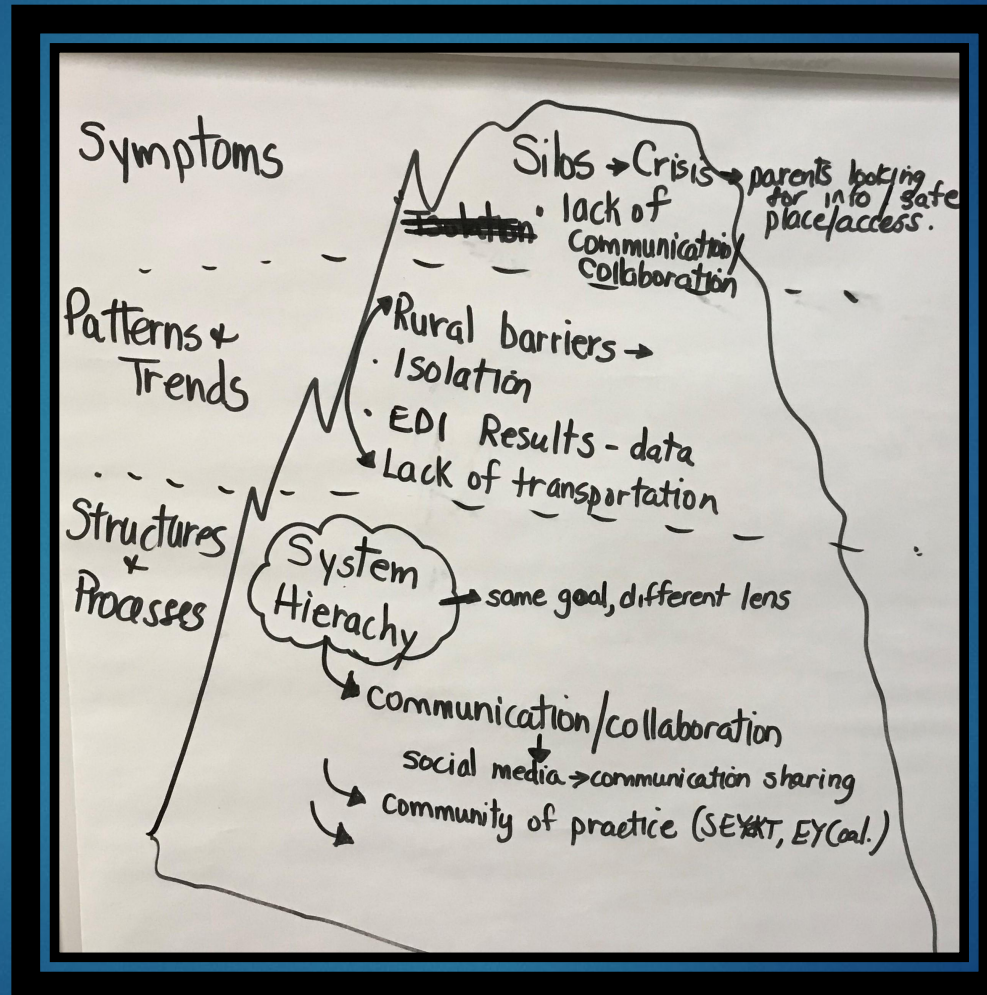 Symptoms
Silos → Crisis → parents looking
for info / safe
place/access.
Isolation
• lack of
communication/
collaboration
Patterns &
Trends
Rural barriers →
• Isolation
• EDI Results - data
Lack of transportation
Structures
&
Processes
System
Hierachy
→ same goal, different lens
communication/collaboration
social media → communication sharing
community of practice (
EYCoal.)